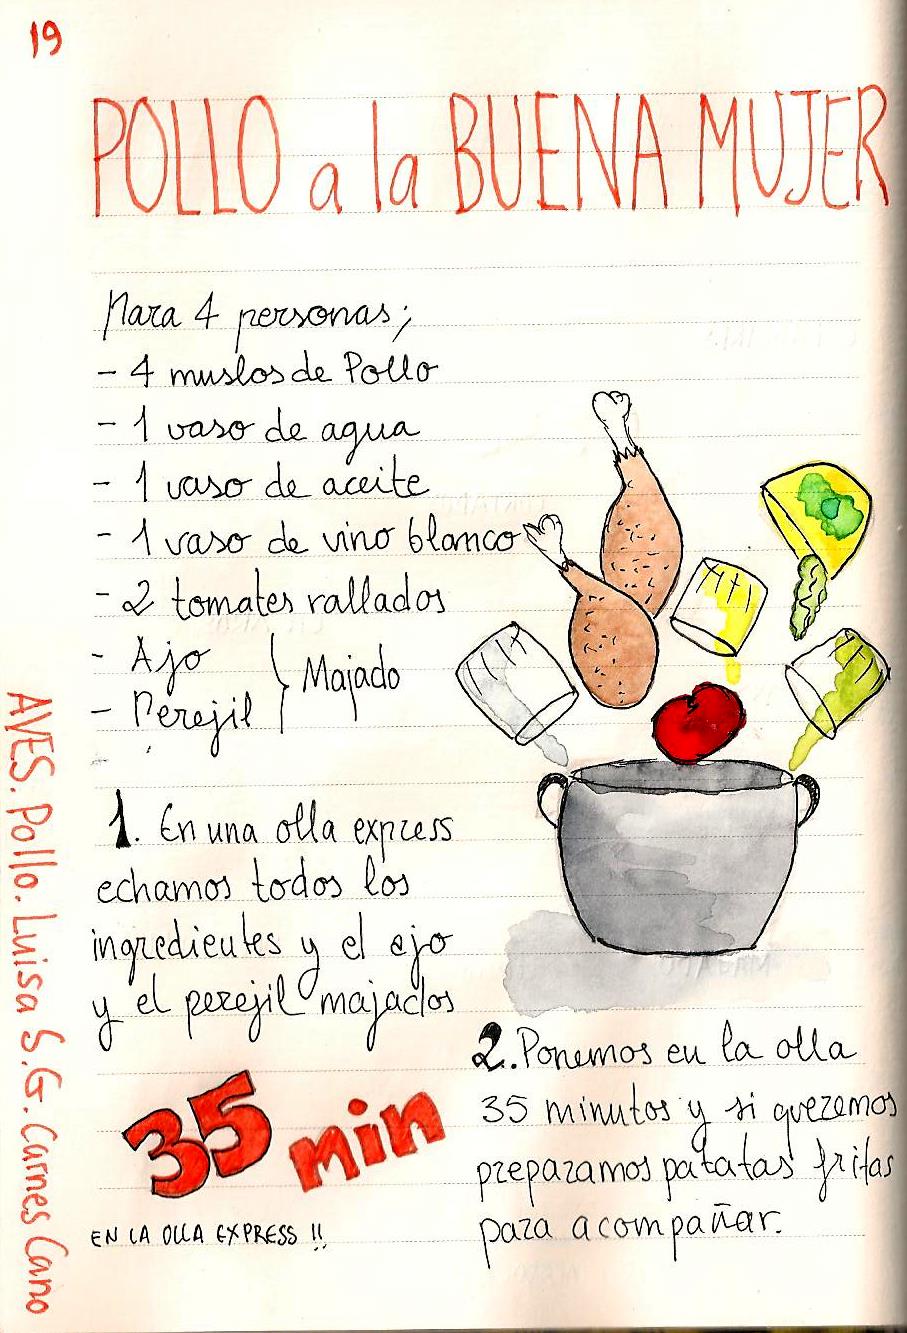 19
POLLO a la BUENA MUJER
Para 4 personas;
- 4 muslos de Pollo
- 1 vaso de agua
- 1 vaso de aceite
- 1 vaso de vino blanco
- 2 tomates rallados
- Ajo
- Perejil
} Majado
1. En una olla express
echamos todos los
ingredientes y el ajo
y el perejil majados
35 min
EN LA OLLA EXPRESS !!
2. Ponemos en la olla
35 minutos y si queremos
preparamos patatas fritas
para acompañar.
AVES. Pollo. Luisa S.G. Carnes Cano